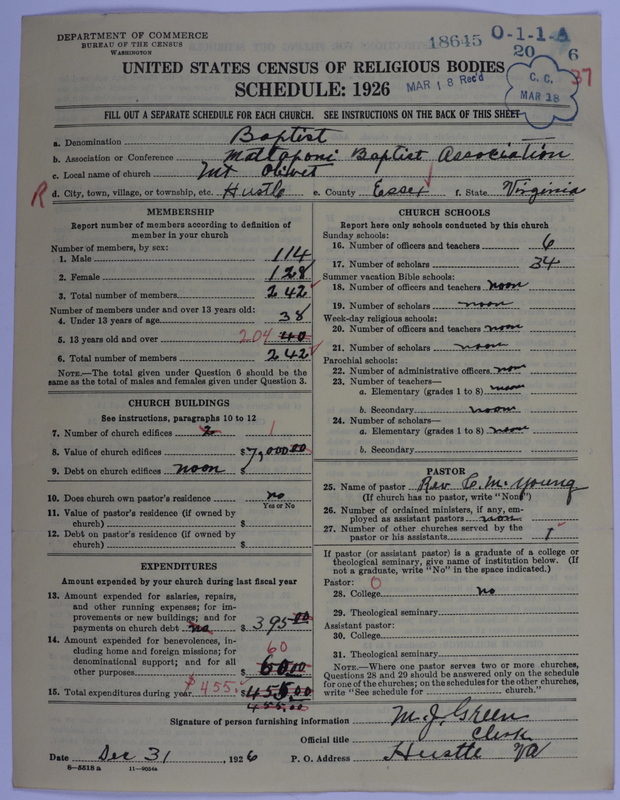 DEPARTMENT OF COMMERCE
BUREAU OF THE CENSUS
WASHINGTON
18645 O-1-1-A
20 6
37
UNITED STATES CENSUS OF RELIGIOUS BODIES
SCHEDULE: 1926
MAR 18 Rec'd
C. C.
MAR 18
FILL OUT A SEPARATE SCHEDULE FOR EACH CHURCH. SEE INSTRUCTIONS ON THE BACK OF THIS SHEET
a. Denomination Baptist
b. Association or Conference Mattaponi Baptist Association
c. Local name of church Mt Olivet
R d. City, town, village, or township, etc. Hustle e. County Essex f. State Virginia
MEMBERSHIP
Report number of members according to definition of
member in your church
Number of members, by sex:
1. Male 114
2. Female 128
3. Total number of members 242
Number of members under and over 13 years old:
4. Under 13 years of age 38
5. 13 years old and over 204 40
6. Total number of members 242
NOTE.—The total given under Question 6 should be
same as the total of males and females given under Question 3.
CHURCH BUILDINGS
See instructions, paragraphs 10 to 12
7. Number of church edifices 2 1
8. Value of church edifices $7,000.00
9. Debt on church edifices noon $
10. Does church own pastor's residence no
Yes or No
11. Value of pastor's residence (if owned by
church) $
12. Debt on pastor's residence (if owned by
church) $
EXPENDITURES
Amount expended by your church during last fiscal year
13. Amount expended for salaries, repairs,
and other running expenses; for im-
provements or new buildings; and for
payments on church debt no $ 395.00
14. Amount expended for benevolences, in-
cluding home and foreign missions; for
denominational support; and for all
other purposes $ 60.00
60
15. Total expenditures during year $455. $455.00
455.00
CHURCH SCHOOLS
Report here only schools conducted by this church
Sunday schools:
16. Number of officers and teachers 6
17. Number of scholars 34
Summer vacation Bible schools:
18. Number of officers and teachers noon
19. Number of scholars noon
Week-day religious schools:
20. Number of officers and teachers noon
21. Number of scholars noon
Parochial schools:
22. Number of administrative officers noon
23. Number of teachers—
a. Elementary (grades 1 to 8) noon
b. Secondary noon
24. Number of scholars—
a. Elementary (grades 1 to 8) noon
b. Secondary
PASTOR
25. Name of pastor Rev. C. M. Young
(If church has no pastor, write "None")
26. Number of ordained ministers, if any, em-
ployed as assistant pastors noon
27. Number of other churches served by the
pastor or his assistants 1
If pastor (or assistant pastor) is a graduate of a college or
theological seminary, give name of institution below. (If
not a graduate, write "No" in the space indicated.)
Pastor: 0
28. College no
29. Theological seminary
Assistant pastor:
30. College
31. Theological seminary
NOTE.—Where one pastor serves two or more churches,
Questions 28 and 29 should be answered only on the schedule
for one of the churches; on the schedules for the other churches,
write "See schedule for church."
Signature of person furnishing information M. J. Green
Official title Clerk
Date Dec 31, 1926 P. O. Address Hustle Va
8—5518 a 11—9034a